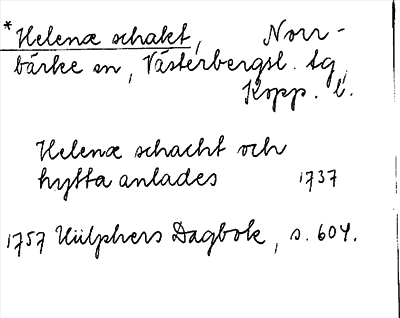 *Helenæ schakt, Norr-
bärke sn, Västerbergsl. tg,
Kopp. l.
Helenæ schacht och
hytta anlades 1737
1757 Hülphers Dagbok, s. 604.